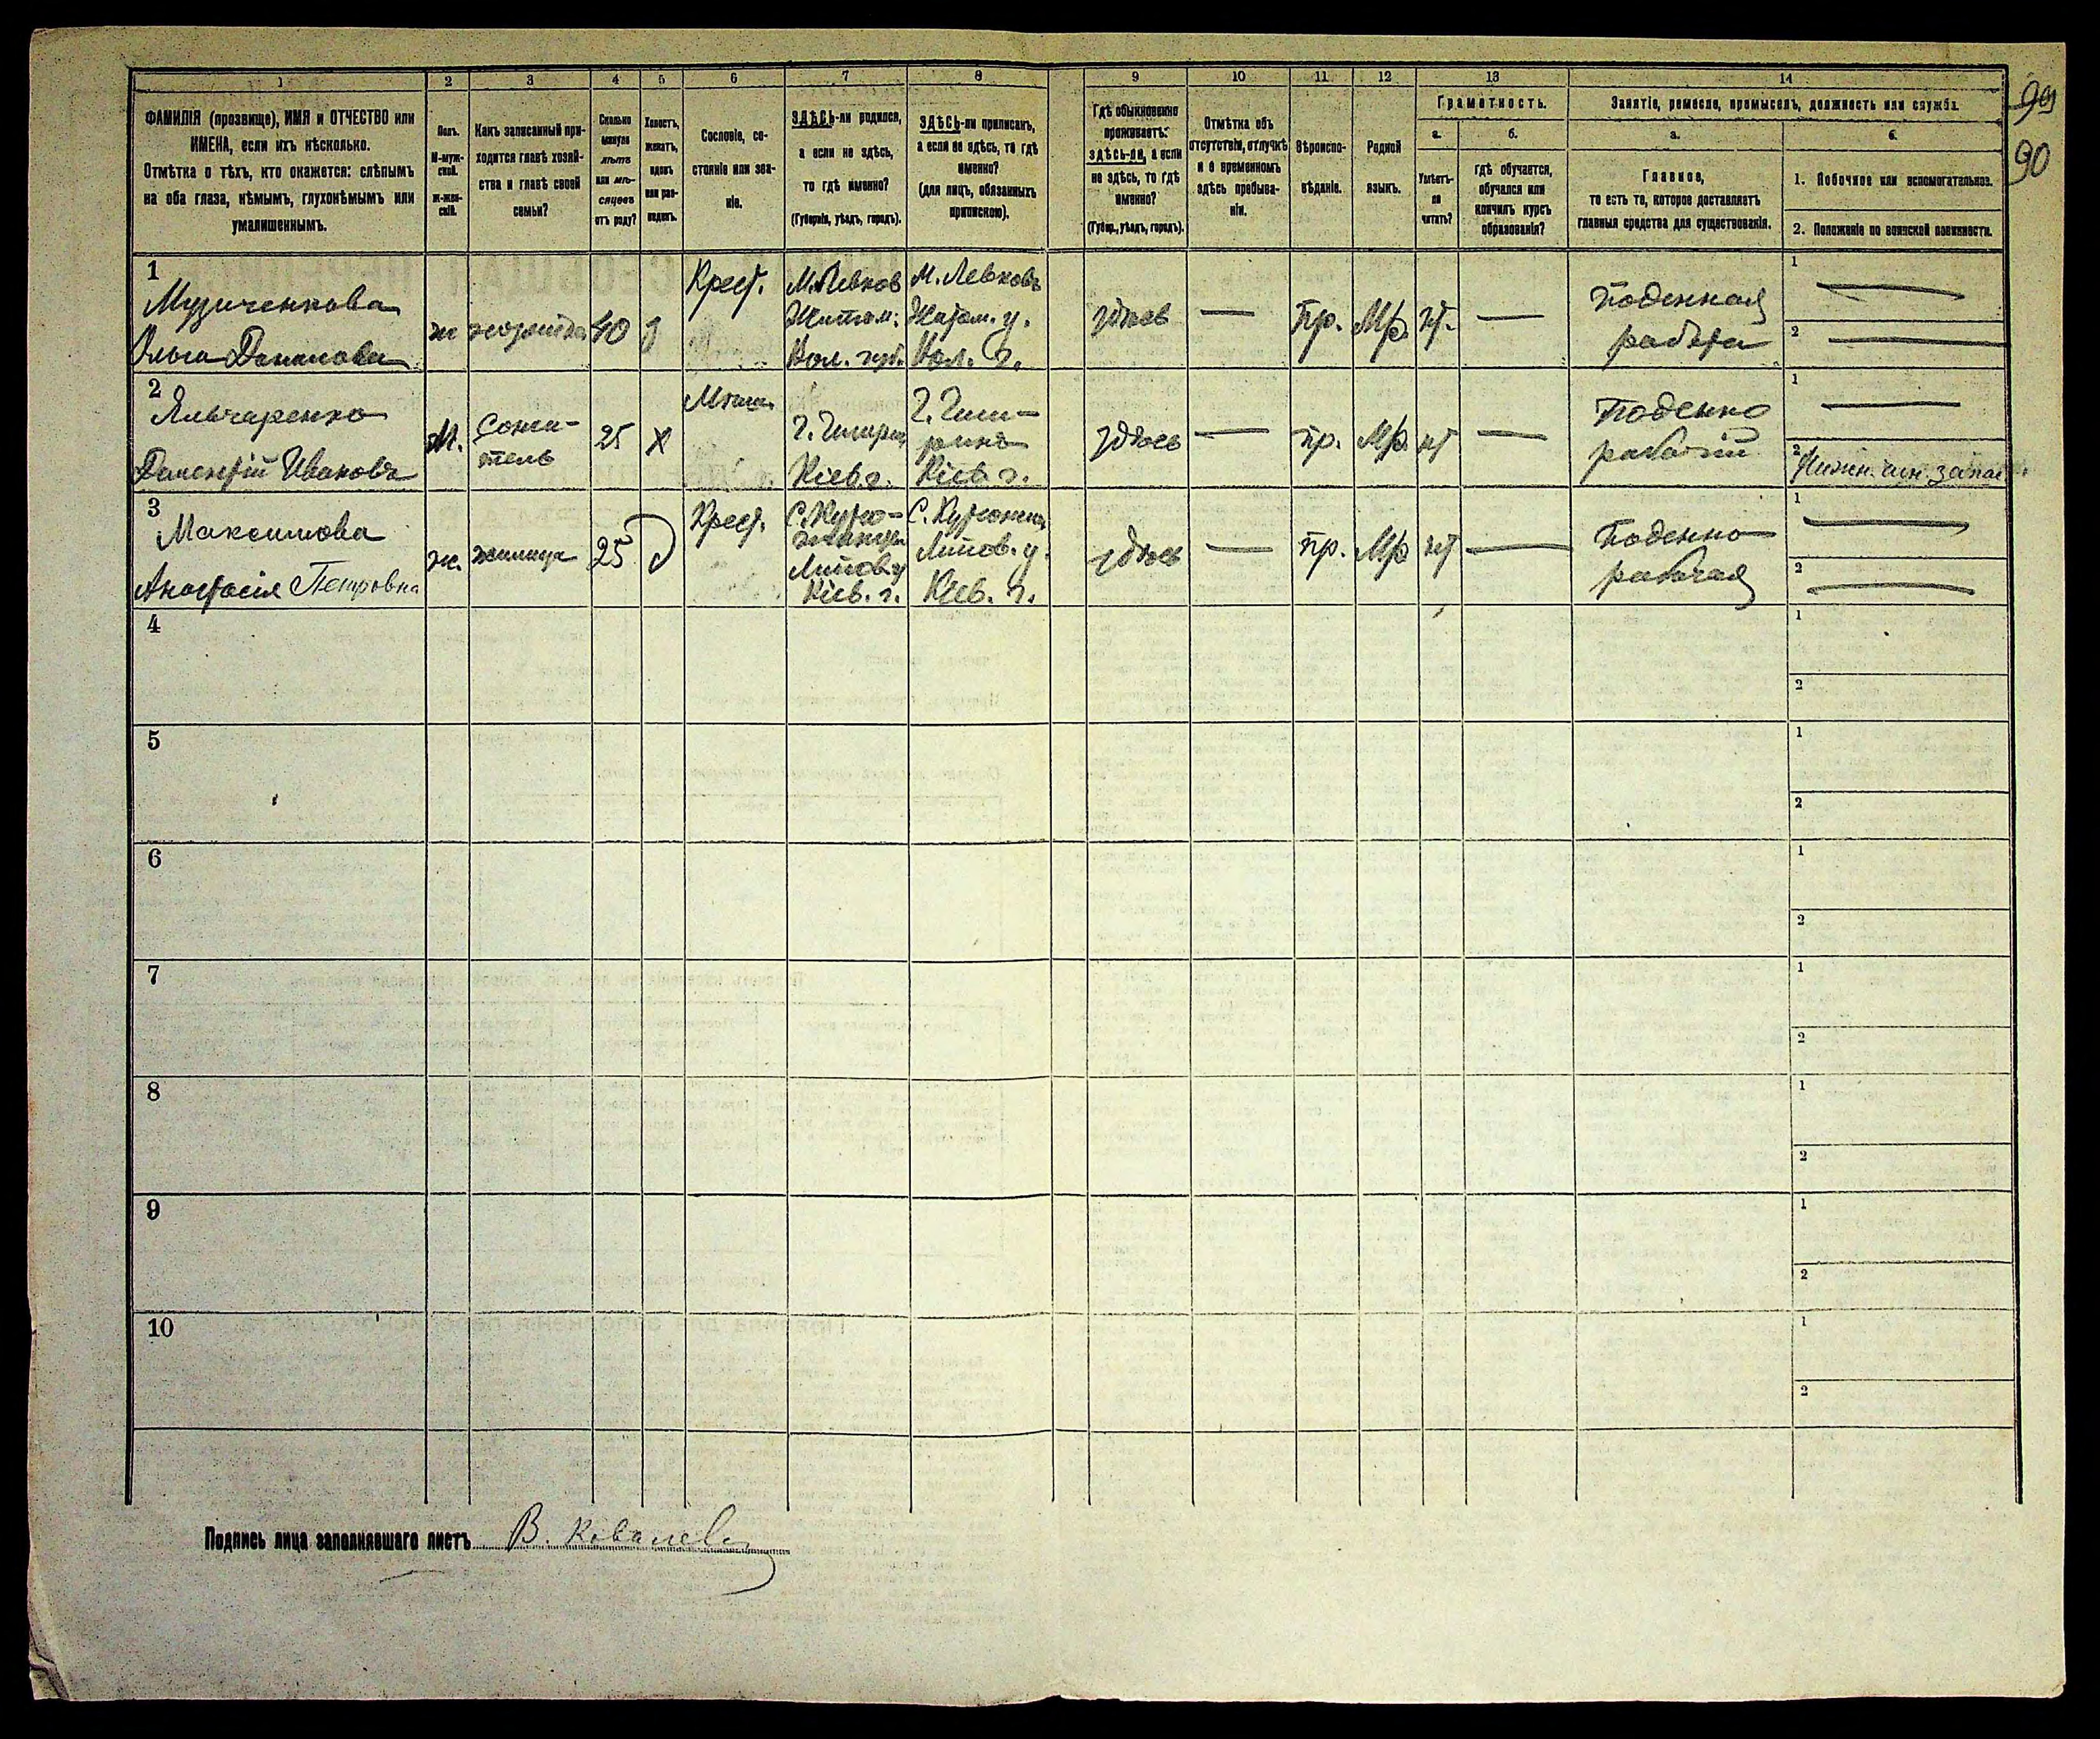 1
2
3
4
5
6
7
8
9
10
11
12
13
14
ФАМИЛІЯ (прозвище), ИМЯ и ОТЧЕСТВО или
ИМЕНА, если ихъ нѣсколько.
Отмѣтка о тѣхъ, кто окажется: слѣпымъ
на оба глаза, нѣмымъ, глухонѣмымъ или
умалишеннымъ.
Полъ.
М-муж-
ской.
ж-жен-
скій.
Какъ записанный при-
ходится главѣ хозяй-
ства и главѣ своей
семьи?
Сколько
минуло
лѣтъ
или мѣ-
сяцевъ
отъ роду?
Холостъ,
женатъ,
вдовъ
или раз-
веденъ.
Сословіе, со-
стояніе или зва-
ніе.
ЗДѢСЬ-ли родился,
а если не здѣсь,
то гдѣ именно?
(Губернія, уѣздъ, городъ).
ЗДѢСЬ-ли приписанъ,
а если не здѣсь, то гдѣ
именно?
(для лицъ, обязанныхъ
припискою).
Гдѣ обыкновенно
проживаетъ:
здѣсь-ли, а если
не здѣсь, то гдѣ
именно?
(Губер., уѣздъ, городъ).
Отмѣтка объ
отсутствіи, отлучкѣ
и о временномъ
здѣсь пребыва-
ніи.
Вѣроиспо-
вѣданіе.
Родной
языкъ.
Грамотность.
а.
б.
Умѣетъ-
ли
читать?
гдѣ обучается,
обучался или
кончилъ курсъ
образованія?
Занятіе, ремесло, промыселъ, должность или служба.
а.
б.
Главное,
то есть то, которое доставляетъ
главныя средства для существованія.
1. Побочное или вспомогательное.
2. Положеніе по воинской повинности.
99
90
1
Музиченкова
Ольга Данилова
ж
хозяйка
40
Крест.
М. Левков
Житом.
Вол. губ.
М. Левковъ
Житом. у.
Вол. г.
здѣсь
—
Пр.
Мр.
нт.
—
Поденная
работа
1 —
2 —
2
Иванова
М.
Сожи-
тель
25
х
Мѣщ.
Г. Чигир.
Кіев. г.
Г. Чиги-
ринъ
Кіев. г.
здѣсь
—
пр.
Мр.
нт
—
Поденно
рабочій
1 —
2
3
Максимова
Анастасія Петровна
ж.
жилица
25
Крест.
Липов. у
Кіев. г.
Липов. у.
Кіев. г.
здѣсь
—
пр.
Мр
нт
—
Поденно
рабочая
1 —
2 —
4
1
2
5
1
2
6
1
2
7
1
2
8
1
2
9
1
2
10
1
2
Подпись лица заполнявшаго листъ В. Ковалев